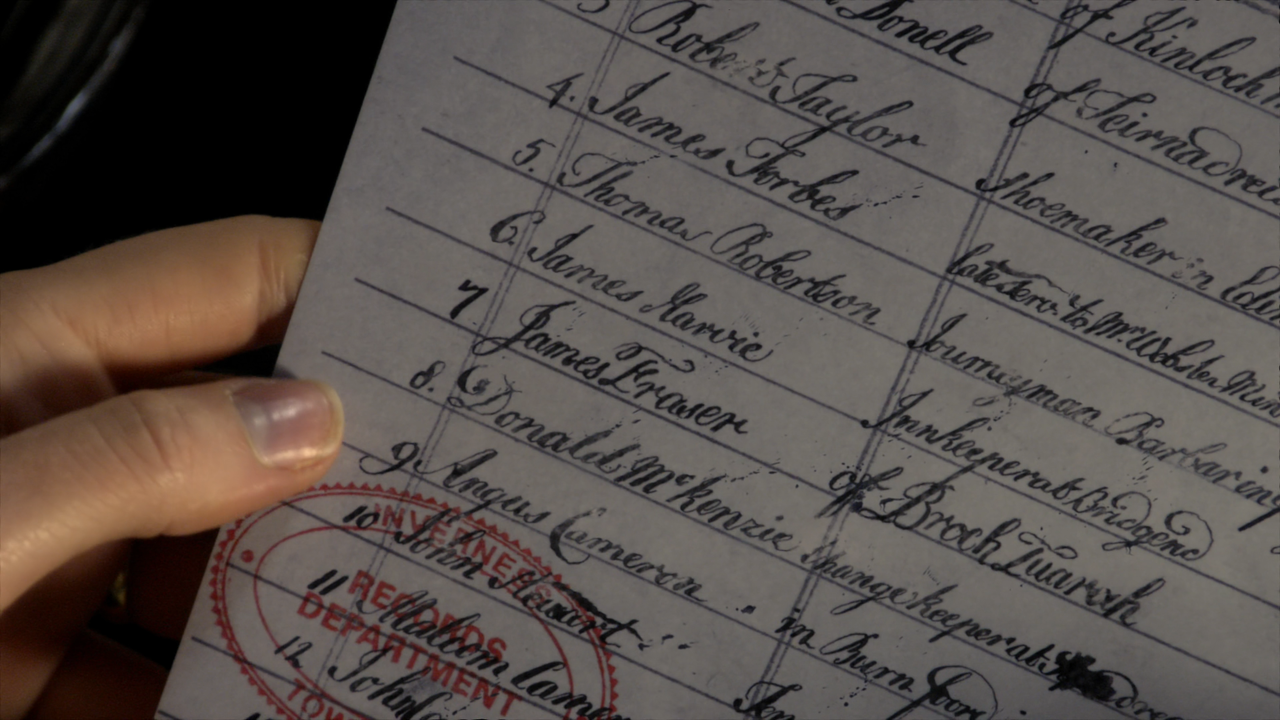 of Kinloch
Donell of Teirnadreis
3 Robert Taylor Shoemaker in Edin
4. James Forbes late Serv to Mr. Webster Min
5. Thomas Robertson Journeyman Barbar in
6. James Harvie Innkeeper at Bridgend
7 James Fraser of Broch Tuarah
8. Donald McKenzie Changekeeper at
9 Angus Cameron in Burn foor
10 John Stewart
11 Malcom Cam
12 John
INVERNESS
RECORDS
DEPARTMENT
TOW